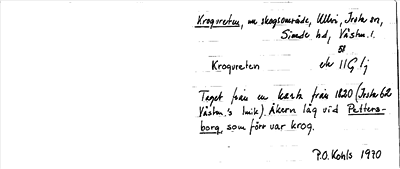 Krogvreten, nu skogsområde, Ullvi, Irsta sn,
Siende hd, Västm. l.
Krogvreten ek 11G 5j
Taget från en karta från 1820 (Irsta 62
Västm.s lmik). Åkern låg vid Petters-
borg, som förr var krog.
P.O. Kohls 1970